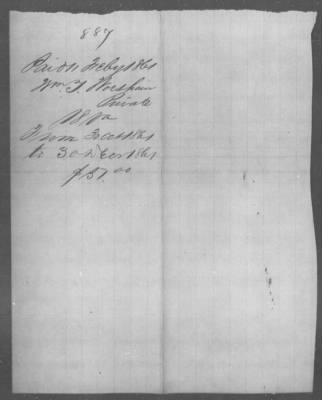 887
Paid 11 Feby 1861
Wm. T. Worsham
Private
18 Va
From Oct 1861
to 30 Dec 1861
$51.00